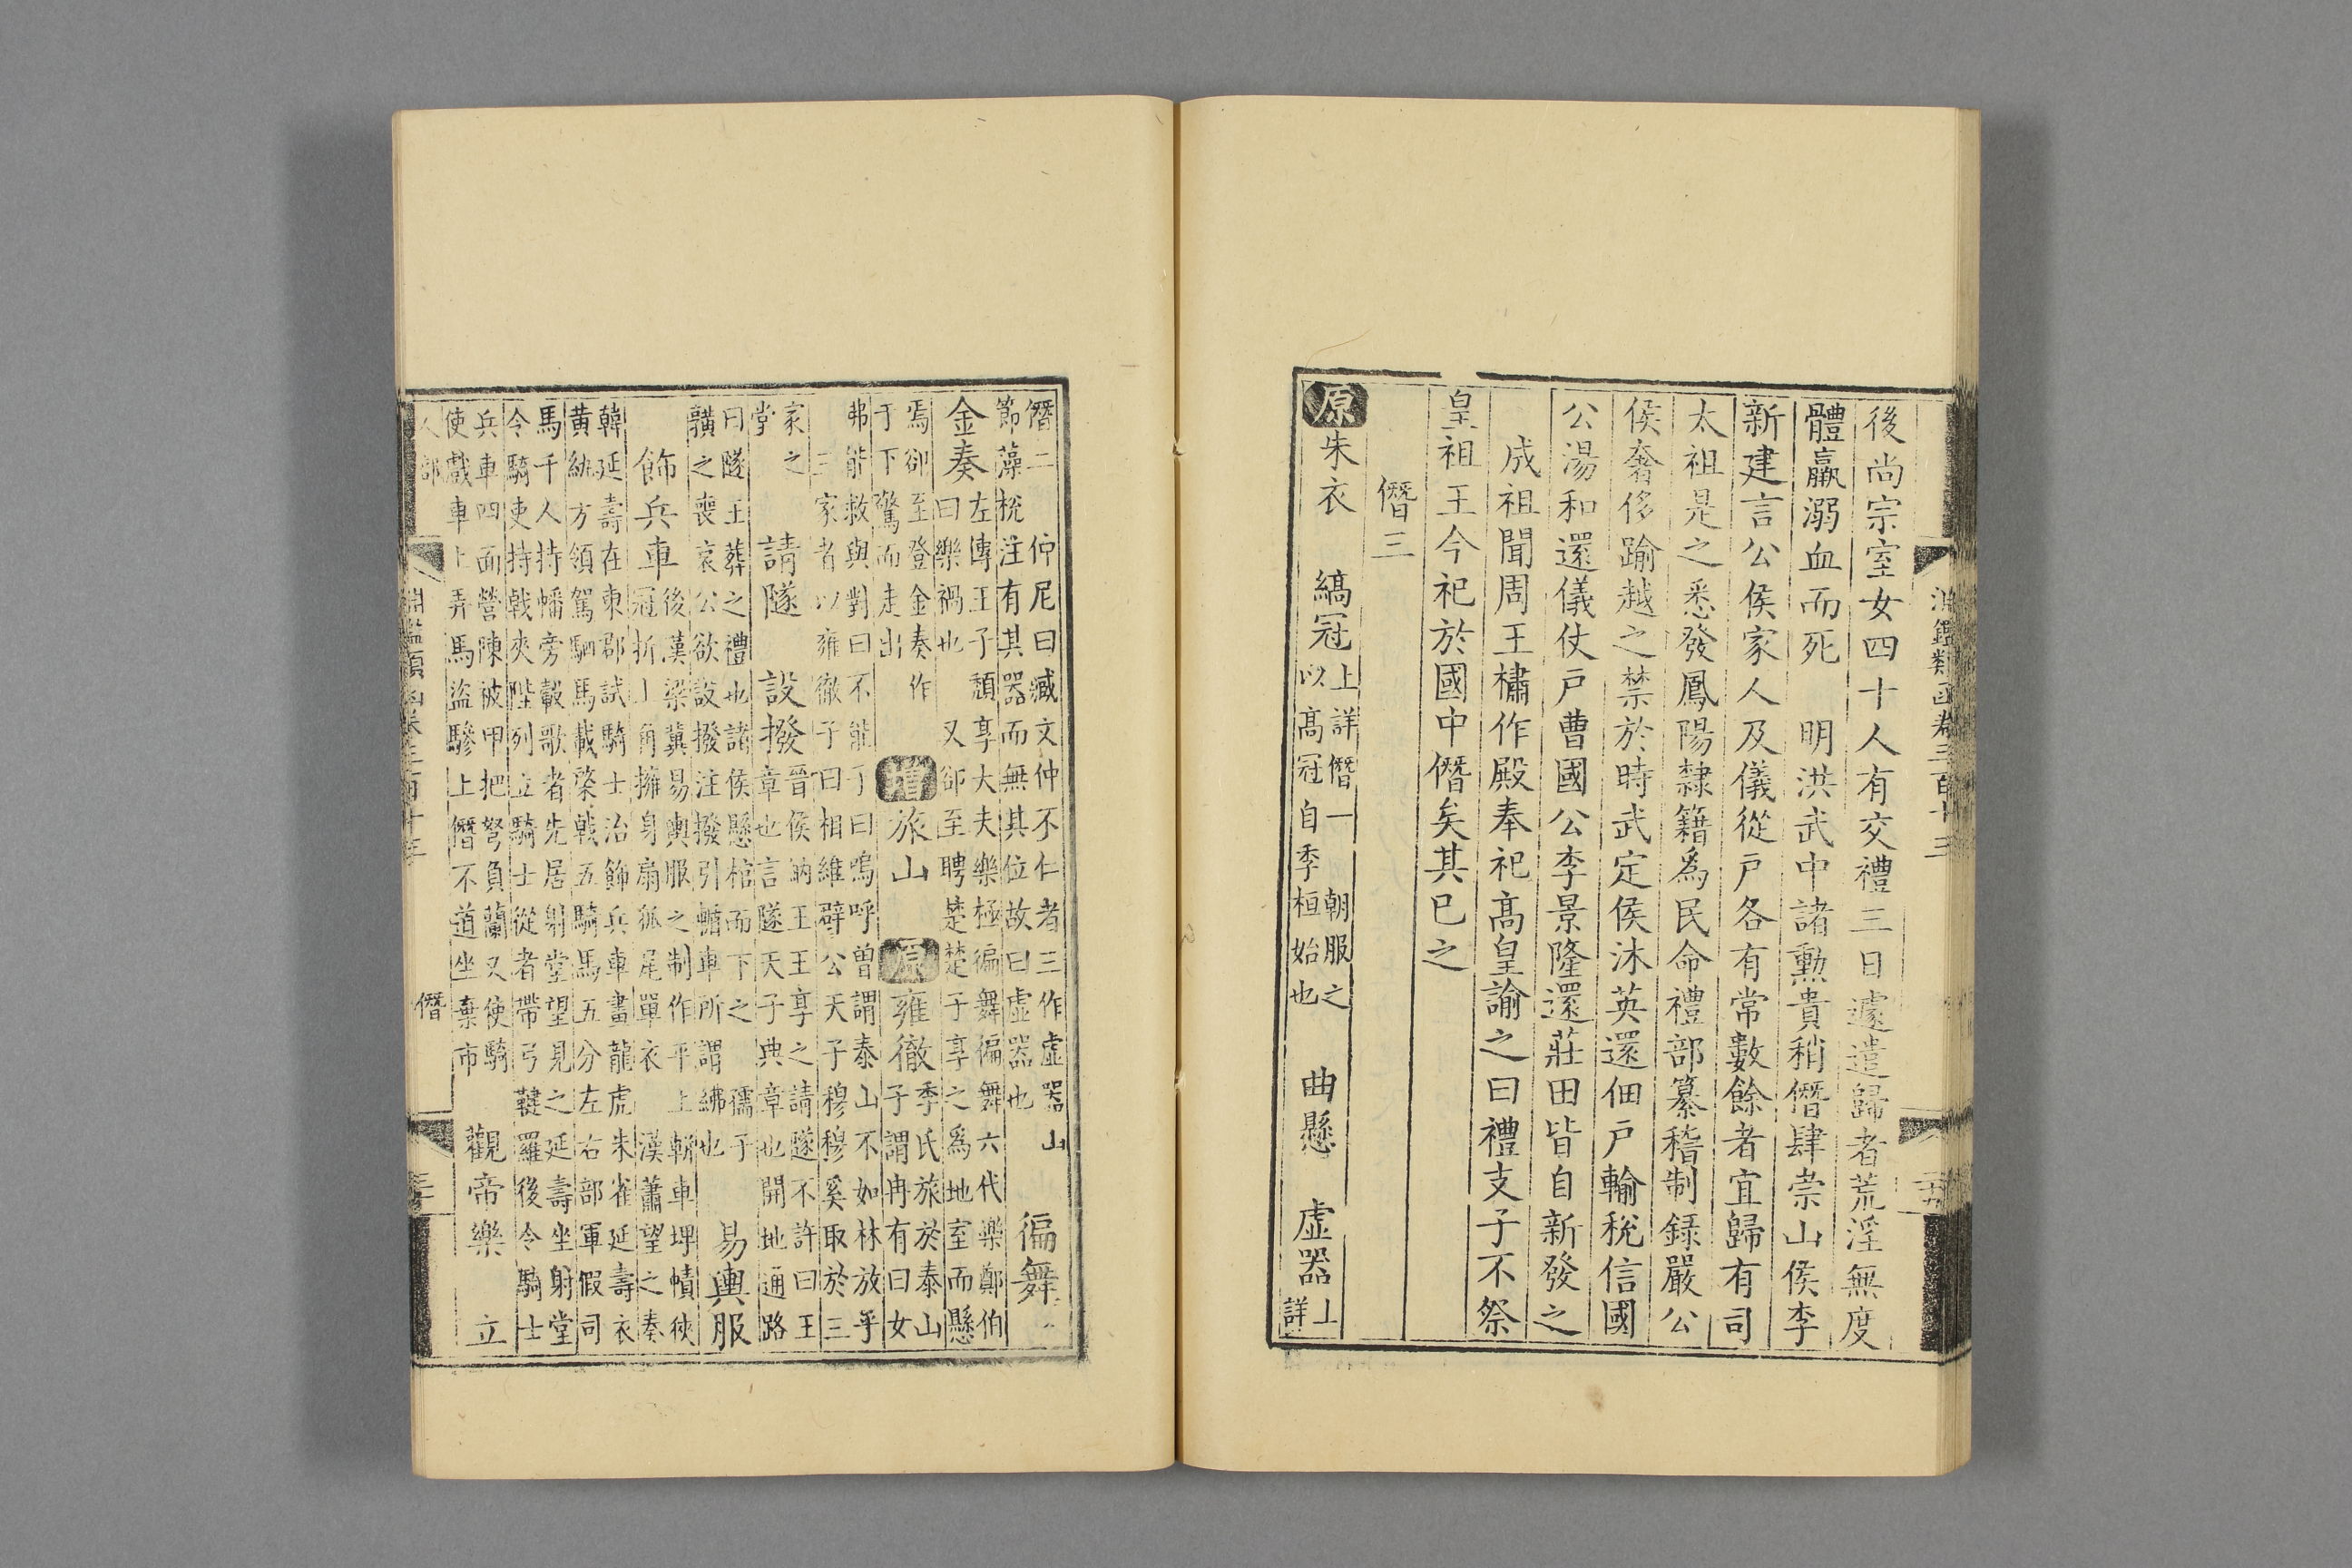 淵鑑類函卷三百十三
後尚宗室女四十人有交禮三日遽遣歸者荒淫無度
體羸溺血而死　明洪武中諸勲貴稍僭肆崇山侯李
新建言公侯家人及儀從戸各有常數餘者宜歸有司
太祖是之悉發鳳陽隸籍為民命禮部纂稽制録嚴公
侯奢侈踰越之禁於時武定侯沐英還佃戸輸稅信國
公湯和還儀仗戸曹國公李景隆還莊田皆自新發之
成祖聞周王橚作殿奉祀髙皇諭之曰禮支子不祭
皇祖王今祀於國中僭矣其已之
僭三
原朱衣　縞冠上詳僭一　朝服之以髙冠自季桓始也　曲懸　虛器上詳
僭二　仲尼曰臧文仲不仁者三作虛器山節藻梲注有其器而無其位故曰虛器也　徧舞
金奏左傳王子頹享大夫樂極徧舞徧舞六代樂鄭伯曰樂禍也　又郤至聘楚楚子享之為地室而懸
焉郤至登金奏作于下驚而走出　增旅山　原雍徹季氏旅於泰山子謂冉有曰女
弗能救與對曰不能子曰嗚呼曾謂泰山不如林放乎三家者以雍徹子曰相維辟公天子穆穆奚取於三
家之堂　請隧　設撥晉侯納王王享之請隧不許曰王章也言隧天子典章也開地通路
曰隧王葬之禮也諸侯懸棺而下之　孺子䵃之喪哀公欲設撥注撥引輴車所謂紼也　易輿服
飾兵車後漢梁冀易輿服之制作平上軿車埤幘狹冠折上角擁身扇狐尾單衣　漢蕭望之奏
韓延壽在東郡試騎士治飾兵車畫龍虎朱雀延壽衣黄紈方領駕駟馬載棨戟五騎馬五分左右部軍假司
馬千人持幡旁轂歌者先居射堂望見之延壽坐射堂令騎吏持戟夾陛列立騎士從者帶弓鞬羅後令騎士
兵車四面營陳被甲把弩負蘭又使騎使戲車上弄馬盜驂上僭不道坐棄市　觀帝樂　立
人部　淵鑑類函卷三百十三　僭